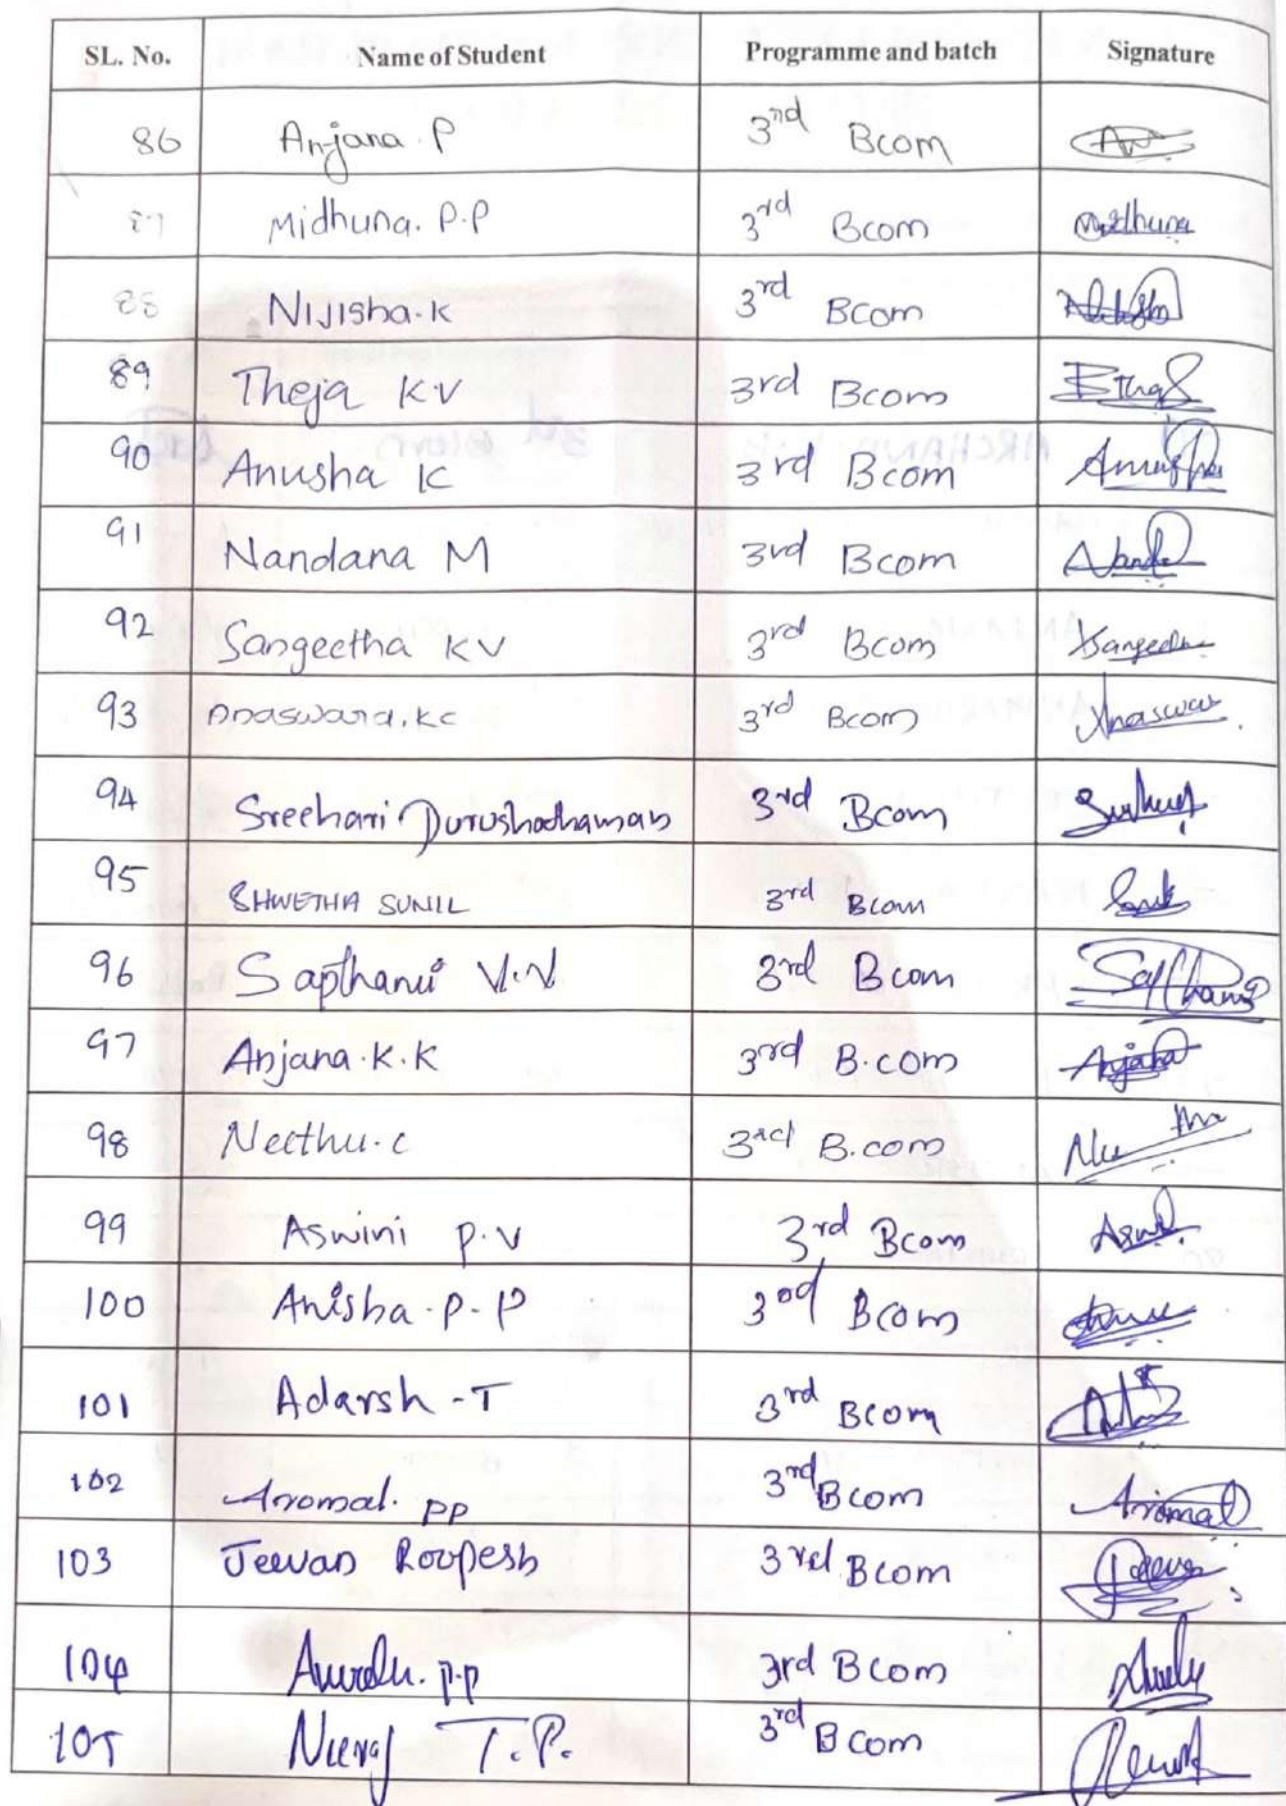 SL. No. Name of Student Programme and batch Signature
86 Anjana.P 3nd Bcom
87 Midhuna. P.P 3rd Bcom Midhuna
88 Nijisha.K 3rd Bcom
89 Theja K.V 3rd Bcom
90 Anusha K 3rd Bcom Anusha
91 Nandana M 3rd Bcom
92 Sangeetha KV 3rd Bcom Sangeetha
93 Anaswara.KC 3rd Bcom Anaswar
94 Sreehari Purushothaman 3rd Bcom
95 SHWETHA SUNIL 3rd Bcom
96 Sapthami V.V 3rd Bcom Sapthami
97 Anjana.K.K 3rd B.com Anjana
98 Neethu.c 3rd B.com
99 Aswini P.V 3rd Bcom
100 Anisha.P.P 3rd Bcom
101 Adarsh-T 3rd Bcom
102 Aromal. PP 3rd Bcom Aromal
103 Jeevan Roopesh 3rd Bcom Jeevan
104 P.P 3rd Bcom
105 Neeraj T.P. 3rd Bcom